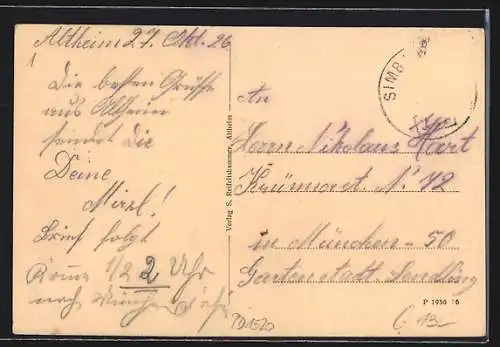 Altheim 27. Okt. 26
1
Die besten Grüsse
aus Altheim
sendet dir
Deine
Mirzl!
Brief folgt
Komme 1/2 2 Uhr
nach München
Verlag S. Reifeltshammer, Altheim
SIMB
An
Herrn Nikolaus Hart
N° 42
in München - 50
Gartenstadt. Sendling
P 1956 26
701520
6.13-